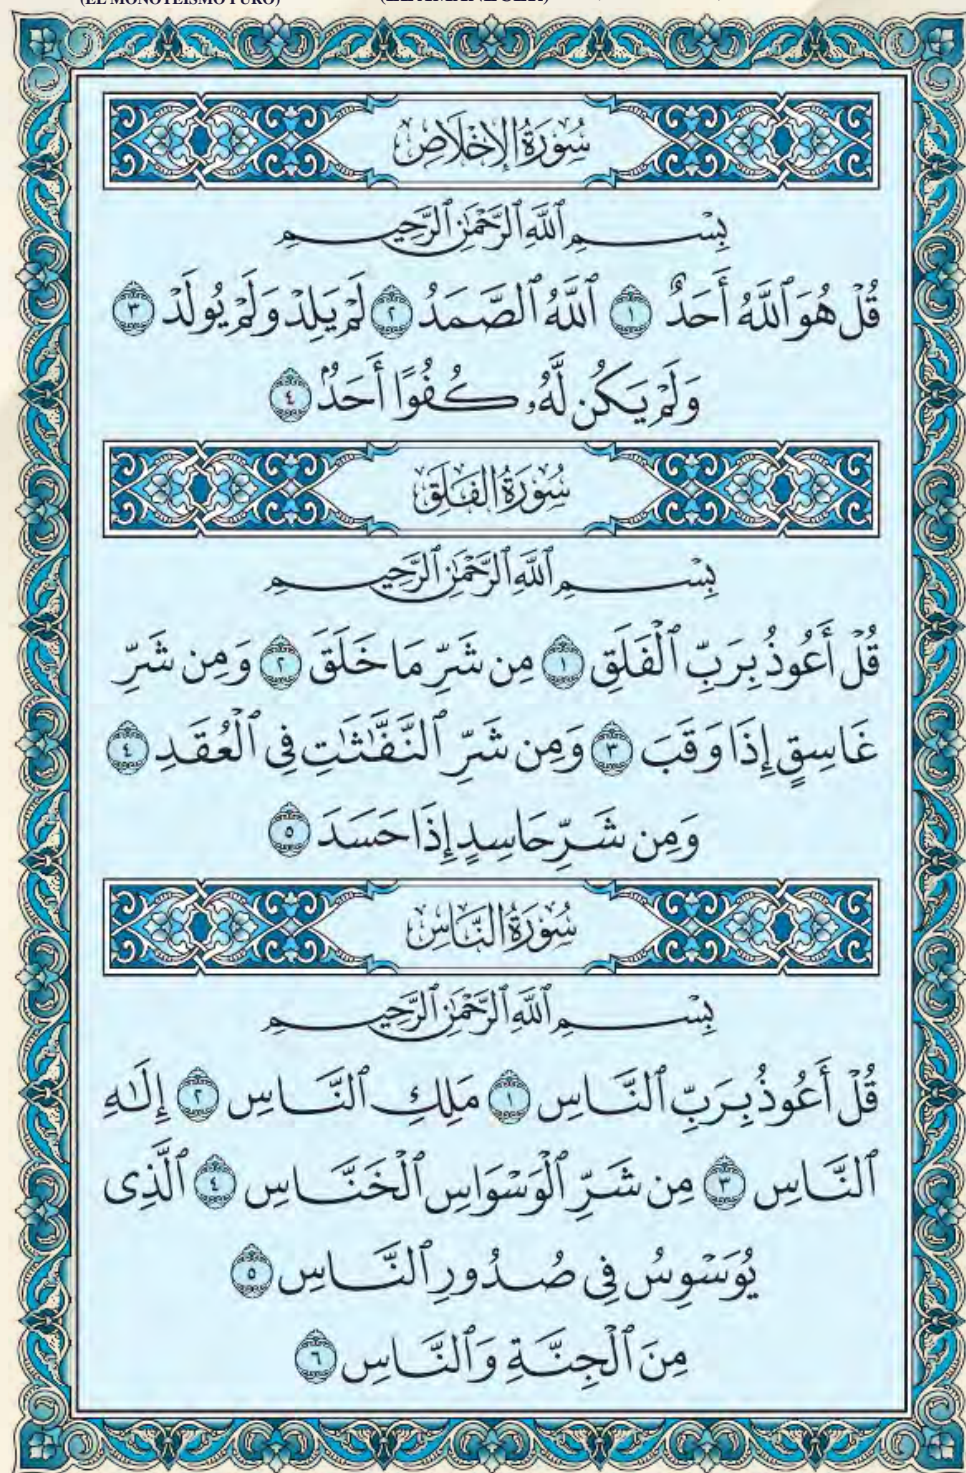 (EL MONOTEÍSMO PURO)
(EL AMANECER)
سُورَةُ الإِخْلَاصِ
بِسْمِ ٱللَّهِ ٱلرَّحْمَٰنِ ٱلرَّحِيمِ
قُلْ هُوَ ٱللَّهُ أَحَدٌ ١ ٱللَّهُ ٱلصَّمَدُ ٢ لَمْ يَلِدْ وَلَمْ يُولَدْ ٣
وَلَمْ يَكُن لَّهُۥ كُفُوًا أَحَدٌۢ ٤
سُورَةُ الفَلَقِ
بِسْمِ ٱللَّهِ ٱلرَّحْمَٰنِ ٱلرَّحِيمِ
قُلْ أَعُوذُ بِرَبِّ ٱلْفَلَقِ ١ مِن شَرِّ مَا خَلَقَ ٢ وَمِن شَرِّ
غَاسِقٍ إِذَا وَقَبَ ٣ وَمِن شَرِّ ٱلنَّفَّٰثَٰتِ فِى ٱلْعُقَدِ ٤
وَمِن شَرِّ حَاسِدٍ إِذَا حَسَدَ ٥
سُورَةُ النَّاسِ
بِسْمِ ٱللَّهِ ٱلرَّحْمَٰنِ ٱلرَّحِيمِ
قُلْ أَعُوذُ بِرَبِّ ٱلنَّاسِ ١ مَلِكِ ٱلنَّاسِ ٢ إِلَٰهِ
ٱلنَّاسِ ٣ مِن شَرِّ ٱلْوَسْوَاسِ ٱلْخَنَّاسِ ٤ ٱلَّذِى
يُوَسْوِسُ فِى صُدُورِ ٱلنَّاسِ ٥
مِنَ ٱلْجِنَّةِ وَٱلنَّاسِ ٦